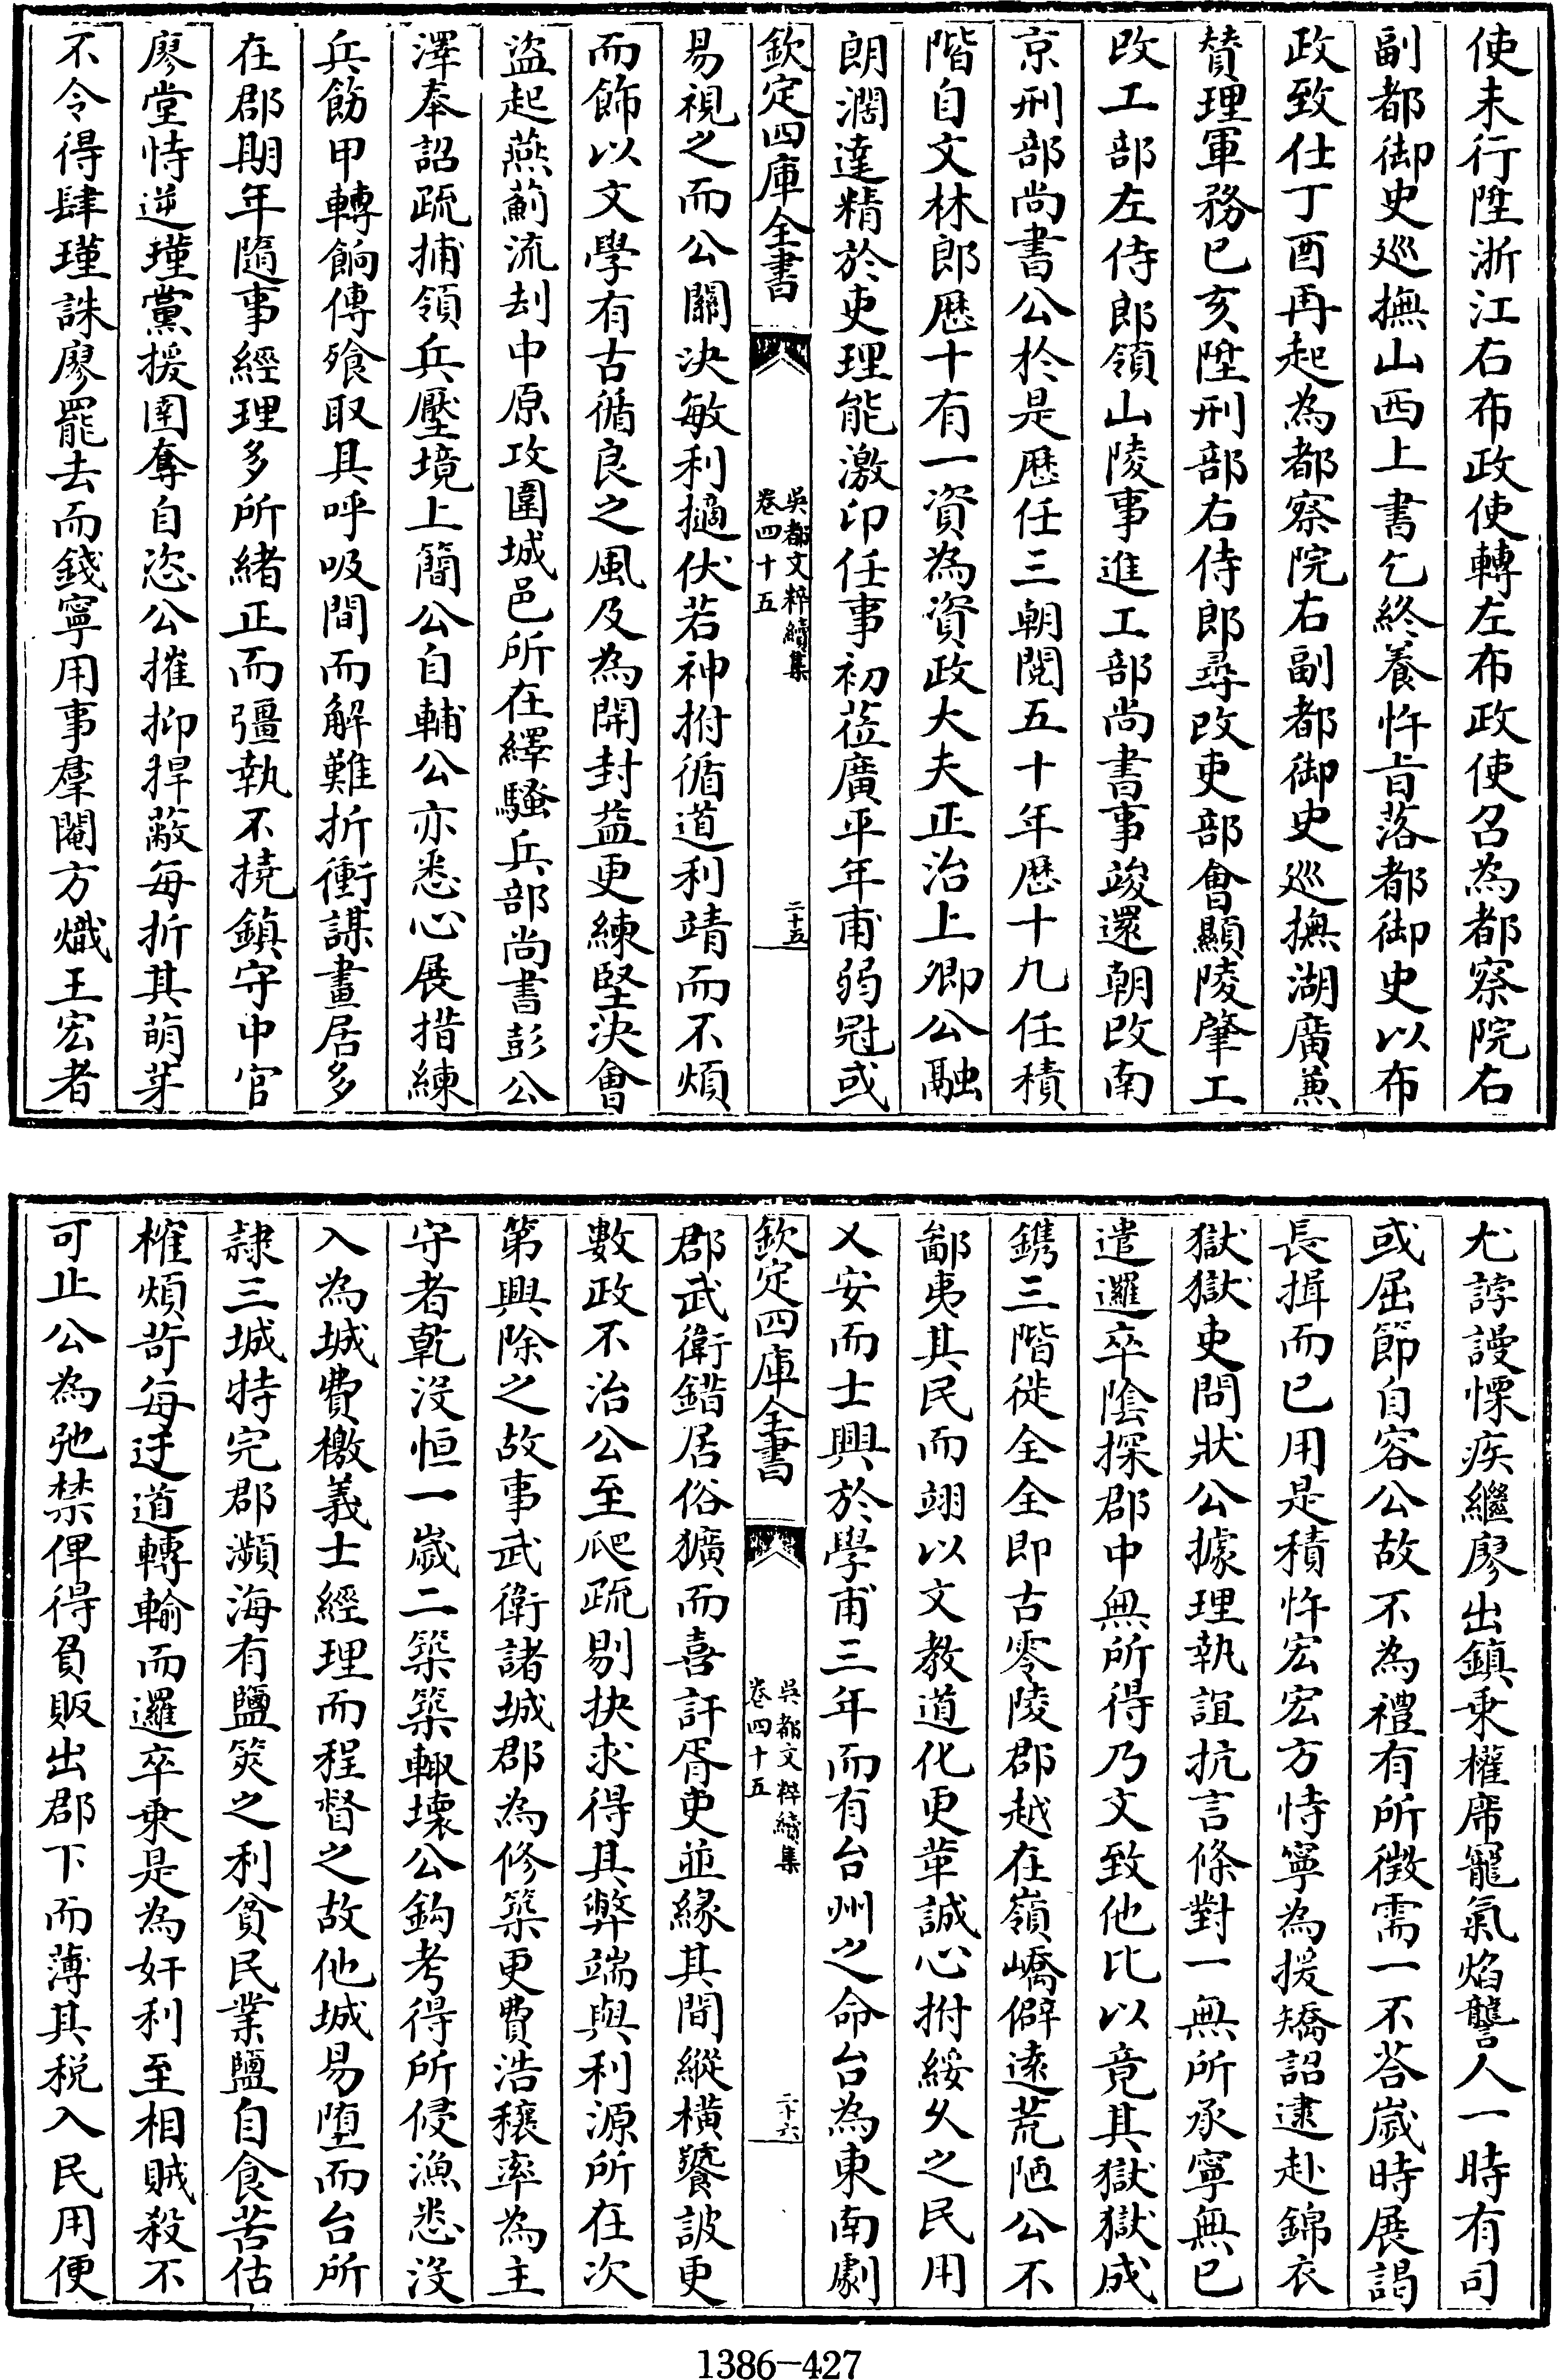 使未行陞浙江右布政使轉左布政使召為都察院右
副都御史巡撫山西上書乞終養忤㫖落都御史以布
政致仕丁酉再起為都察院右副都御史巡撫湖廣兼
賛理軍務已亥陞刑部右侍郎尋改吏部會顯陵肇工
改工部左侍郎領山陵事進工部尚書事竣還朝改南
京刑部尚書公於是歴任三朝閱五十年歴十九任積
階自文林郎歴十有一資為資政大夫正治上卿公融
朗濶達精於吏理能激卬任事初蒞廣平年甫弱冠或
欽定四庫全書
吳都文粹續集
卷四十五
二十五
易視之而公關决敏利擿伏若神拊循道利靖而不煩
而飾以文學有古循良之風及為開封益更練堅決會
盗起燕薊流刦中原攻圍城邑所在繹騷兵部尚書彭公
澤奉詔疏捕領兵壓境上簡公自輔公亦悉心展措練
兵飭甲轉餉傳飱取具呼吸間而解難折衝謀畫居多
在郡期年隨事經理多所緒正而彊執不撓鎮守中官
廖堂恃逆瑾黨援圉奪自恣公摧抑捍蔽每折其萌芽
不令得肆瑾誅廖罷去而錢寧用事羣閹方熾王宏者
尤誖謾慓疾繼廖出鎮乗權席寵氣焰讋人一時有司
或屈節自容公故不為禮有所徴需一不荅嵗時展謁
長揖而已用是積忤宏宏方恃寧為援矯詔逮赴錦衣
獄獄吏問狀公據理執誼抗言條對一無所承寧無已
遣邏卒陰探郡中無所得乃文致他比以竟其獄獄成
鐫三階徙全全即古零陵郡越在嶺嶠僻逺荒陋公不
鄙夷其民而翊以文教道化更革誠心拊綏乆之民用
乂安而士興於學甫三年而有台州之命台為東南劇
欽定四庫全書
吳都文粹續集
卷四十五
二十六
郡武衛錯居俗獷而喜訐胥吏並緣其間縱橫饕詖更
數政不治公至爬疏剔抉求得其弊端與利源所在次
第興除之故事武衛諸城郡為修築更費浩穰率為主
守者乾沒恒一嵗二築築輙壞公鈎考得所侵漁悉沒
入為城費檄義士經理而程督之故他城易堕而台所
隷三城特完郡瀕海有鹽筴之利貧民業鹽自食苦估
榷煩苛每迂道轉輸而邏卒乗是為奸利至相賊殺不
可止公為弛禁俾得負販出郡下而薄其稅入民用便
1386-427